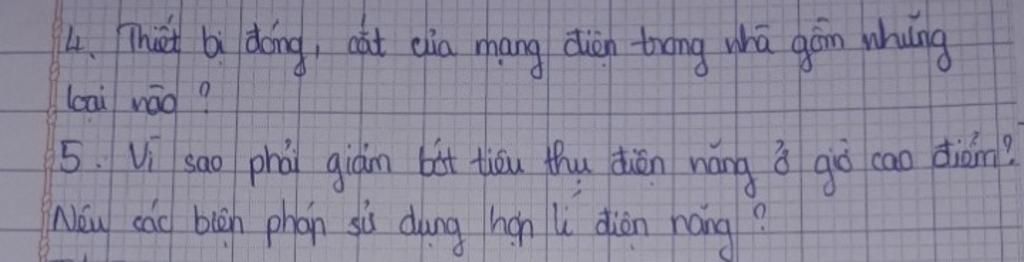 4. Thiết bị đóng, cắt của mạng điện trong nhà gồm những
loại nào?
5. Vì sao phải giảm bớt tiêu thụ điện năng ở giờ cao điểm?
Nêu các biện pháp sử dụng hợp lí điện năng?